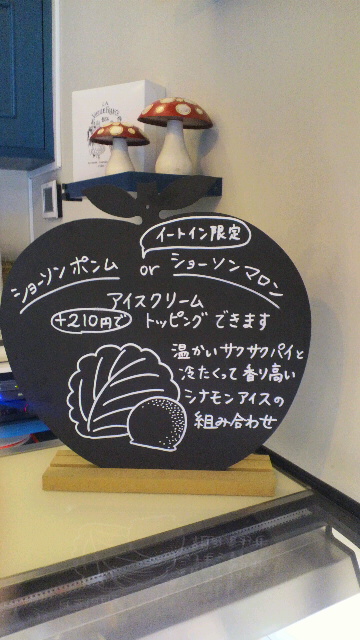 イートイン限定
ショーソンポンム or ショーソンマロン
アイスクリーム
+210円で トッピングできます
温かいサクサクパイと
冷たくって香り高い
シナモンアイスの
組み合わせ